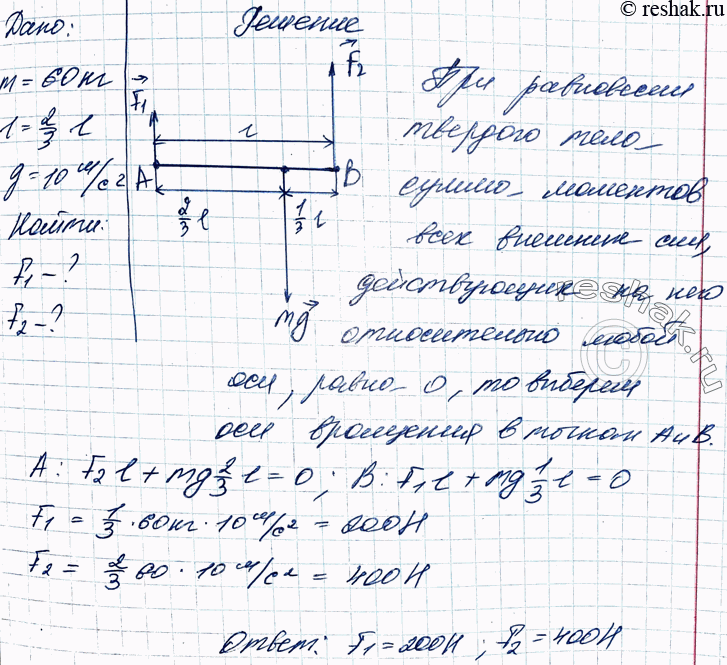 © reshak.ru
Дано:
m = 60 кг
l = 2/3 l
g = 10 м/с²
Найти:
F₁ - ?
F₂ - ?
Решение
F₁
F₂
l
A
B
2/3 l
1/3 l
mg
При равновесии
твердого тела
сумма моментов
всех внешних сил,
действующих на него
относительно любой
оси, равна 0, то выберем
оси вращения в точках A и B.
A: F₂ l + mg 2/3 l = 0; B: F₁ l + mg 1/3 l = 0
F₁ = 1/3 · 60 кг · 10 м/с² = 200 Н
F₂ = 2/3 60 · 10 м/с² = 400 Н
Ответ: F₁ = 200 Н; F₂ = 400 Н
reshak.ru
©